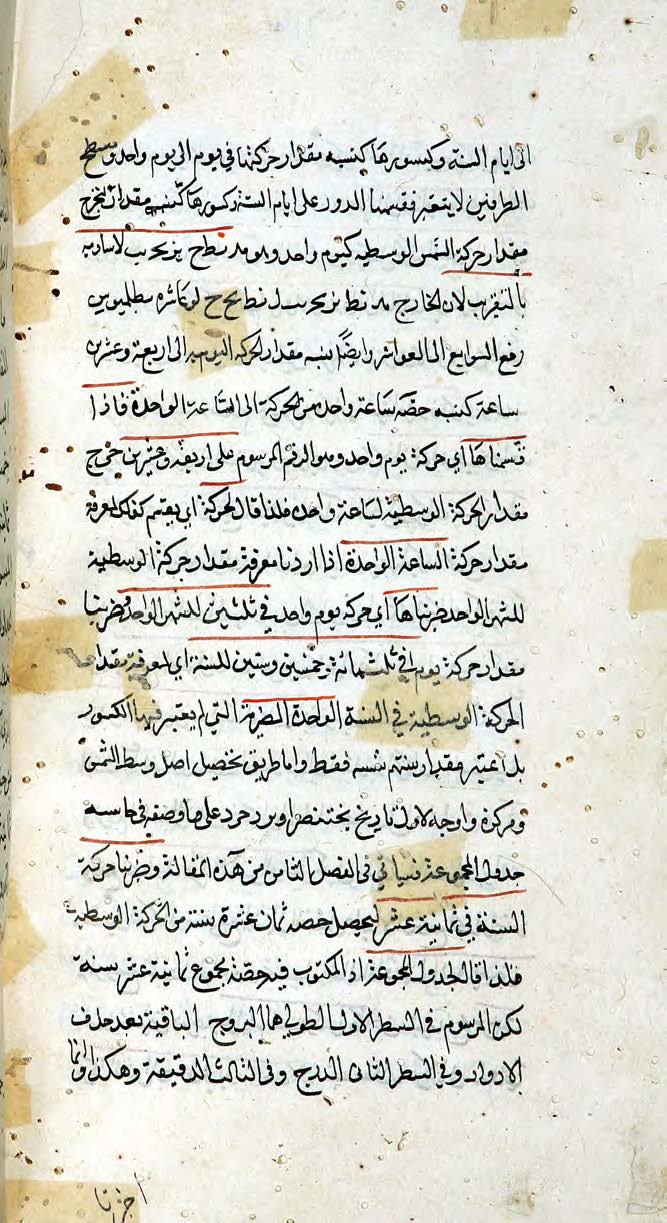 الى ايام السنة وكسورها كنسبة مقدار حركتها في يوم الى يوم واحد ومسطح
الطرفين لا يتغير فقسمنا الدور على ايام السنة وكسورها كنسبة مقدار فخرج
مقدار حركة الشمس الوسطية ليوم واحد وهو
بالتقريب لان الخارج عاشره بطلميوس
رفع السوابع الى العواشر وايضا نسبة مقدار الحركة اليومية الى اربعة وعشرين
ساعة كنسبة حصة ساعة واحدة من الحركة الى الساعة الواحدة فاذا
قسمناها اي حركة يوم واحد وهو الرقم المرسوم على اربعة وعشرين خرج
مقدار الحركة الوسطية لساعة واحدة فلذا قال الحركة اي يقسم كذلك لمعرفة
مقدار حركة الساعة الواحدة اذا اردنا معرفة مقدار حركة الوسطية
للشهر الواحد ضربناها اي حركة يوم واحد في ثلثين للشهر الواحد وضربنا
مقدار حركة يوم في ثلثمائة وخمسين وستين للسنة اي لمعرفة مقدار
الحركة الوسطية في السنة الواحدة التي لم يعتبر فيها الكسور
بل اعتبر مقدار شمسه فقط واما طريق تحصيل اصل وسط الشمس
ومركزه واوجه لاول تاريخ بختنصر او يزدجرد على ما وصفه في
جدول المجموعة فسياتي في الفصل الثامن من هذه المقالة وضربنا حركة
السنة في ثمانية عشر ليحصل حصة ثمان عشرة سنة من الحركة الوسطية
فلذا قال لجدول المجموعة اذ المكتوب فيه حصة مجموع ثمانية عشر سنة
لكن المرسوم في السطر الاول الطولي هما البروج الباقية بعد حذف
الادوار وفي السطر الثاني الدرج وفي الثالث الدقيقة وهكذا وانما
اخرنا